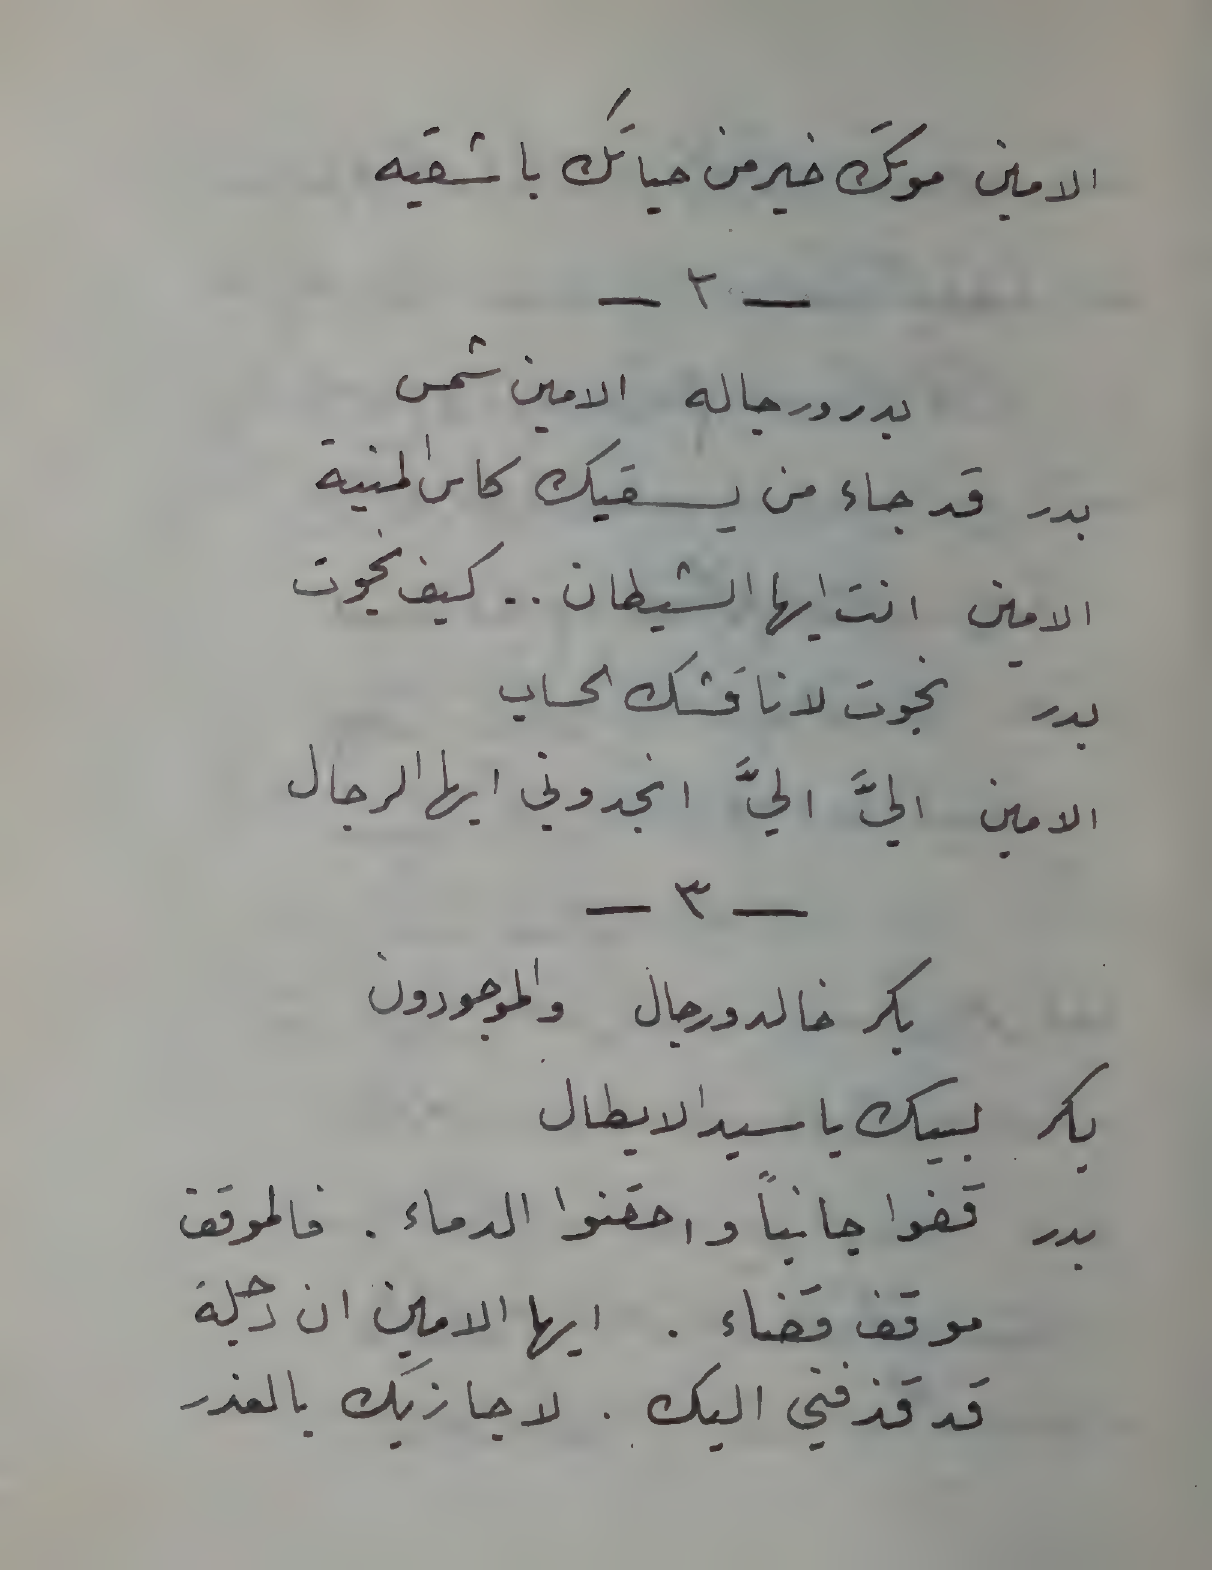 الامين موتك خير من حياتك يا شقيه
— ٢ —
بدر ورجاله الامين شمس
بدر قد جاء من يسقيك كاس المنية
الامين انت ايها الشيطان .. كيف نجوت
بدر نجوت لاناقشك الحساب
الامين اليَّ اليَّ انجدوني ايها الرجال
— ٣ —
بكر خالد ورجال والموجودون
بكر لبيك يا سيد الابطال
بدر قفوا جانباً واحقنوا الدماء . فالموقف
موقف قضاء . ايها الامين ان دجلة
قد قذفني اليك . لاجازيك بالغدر